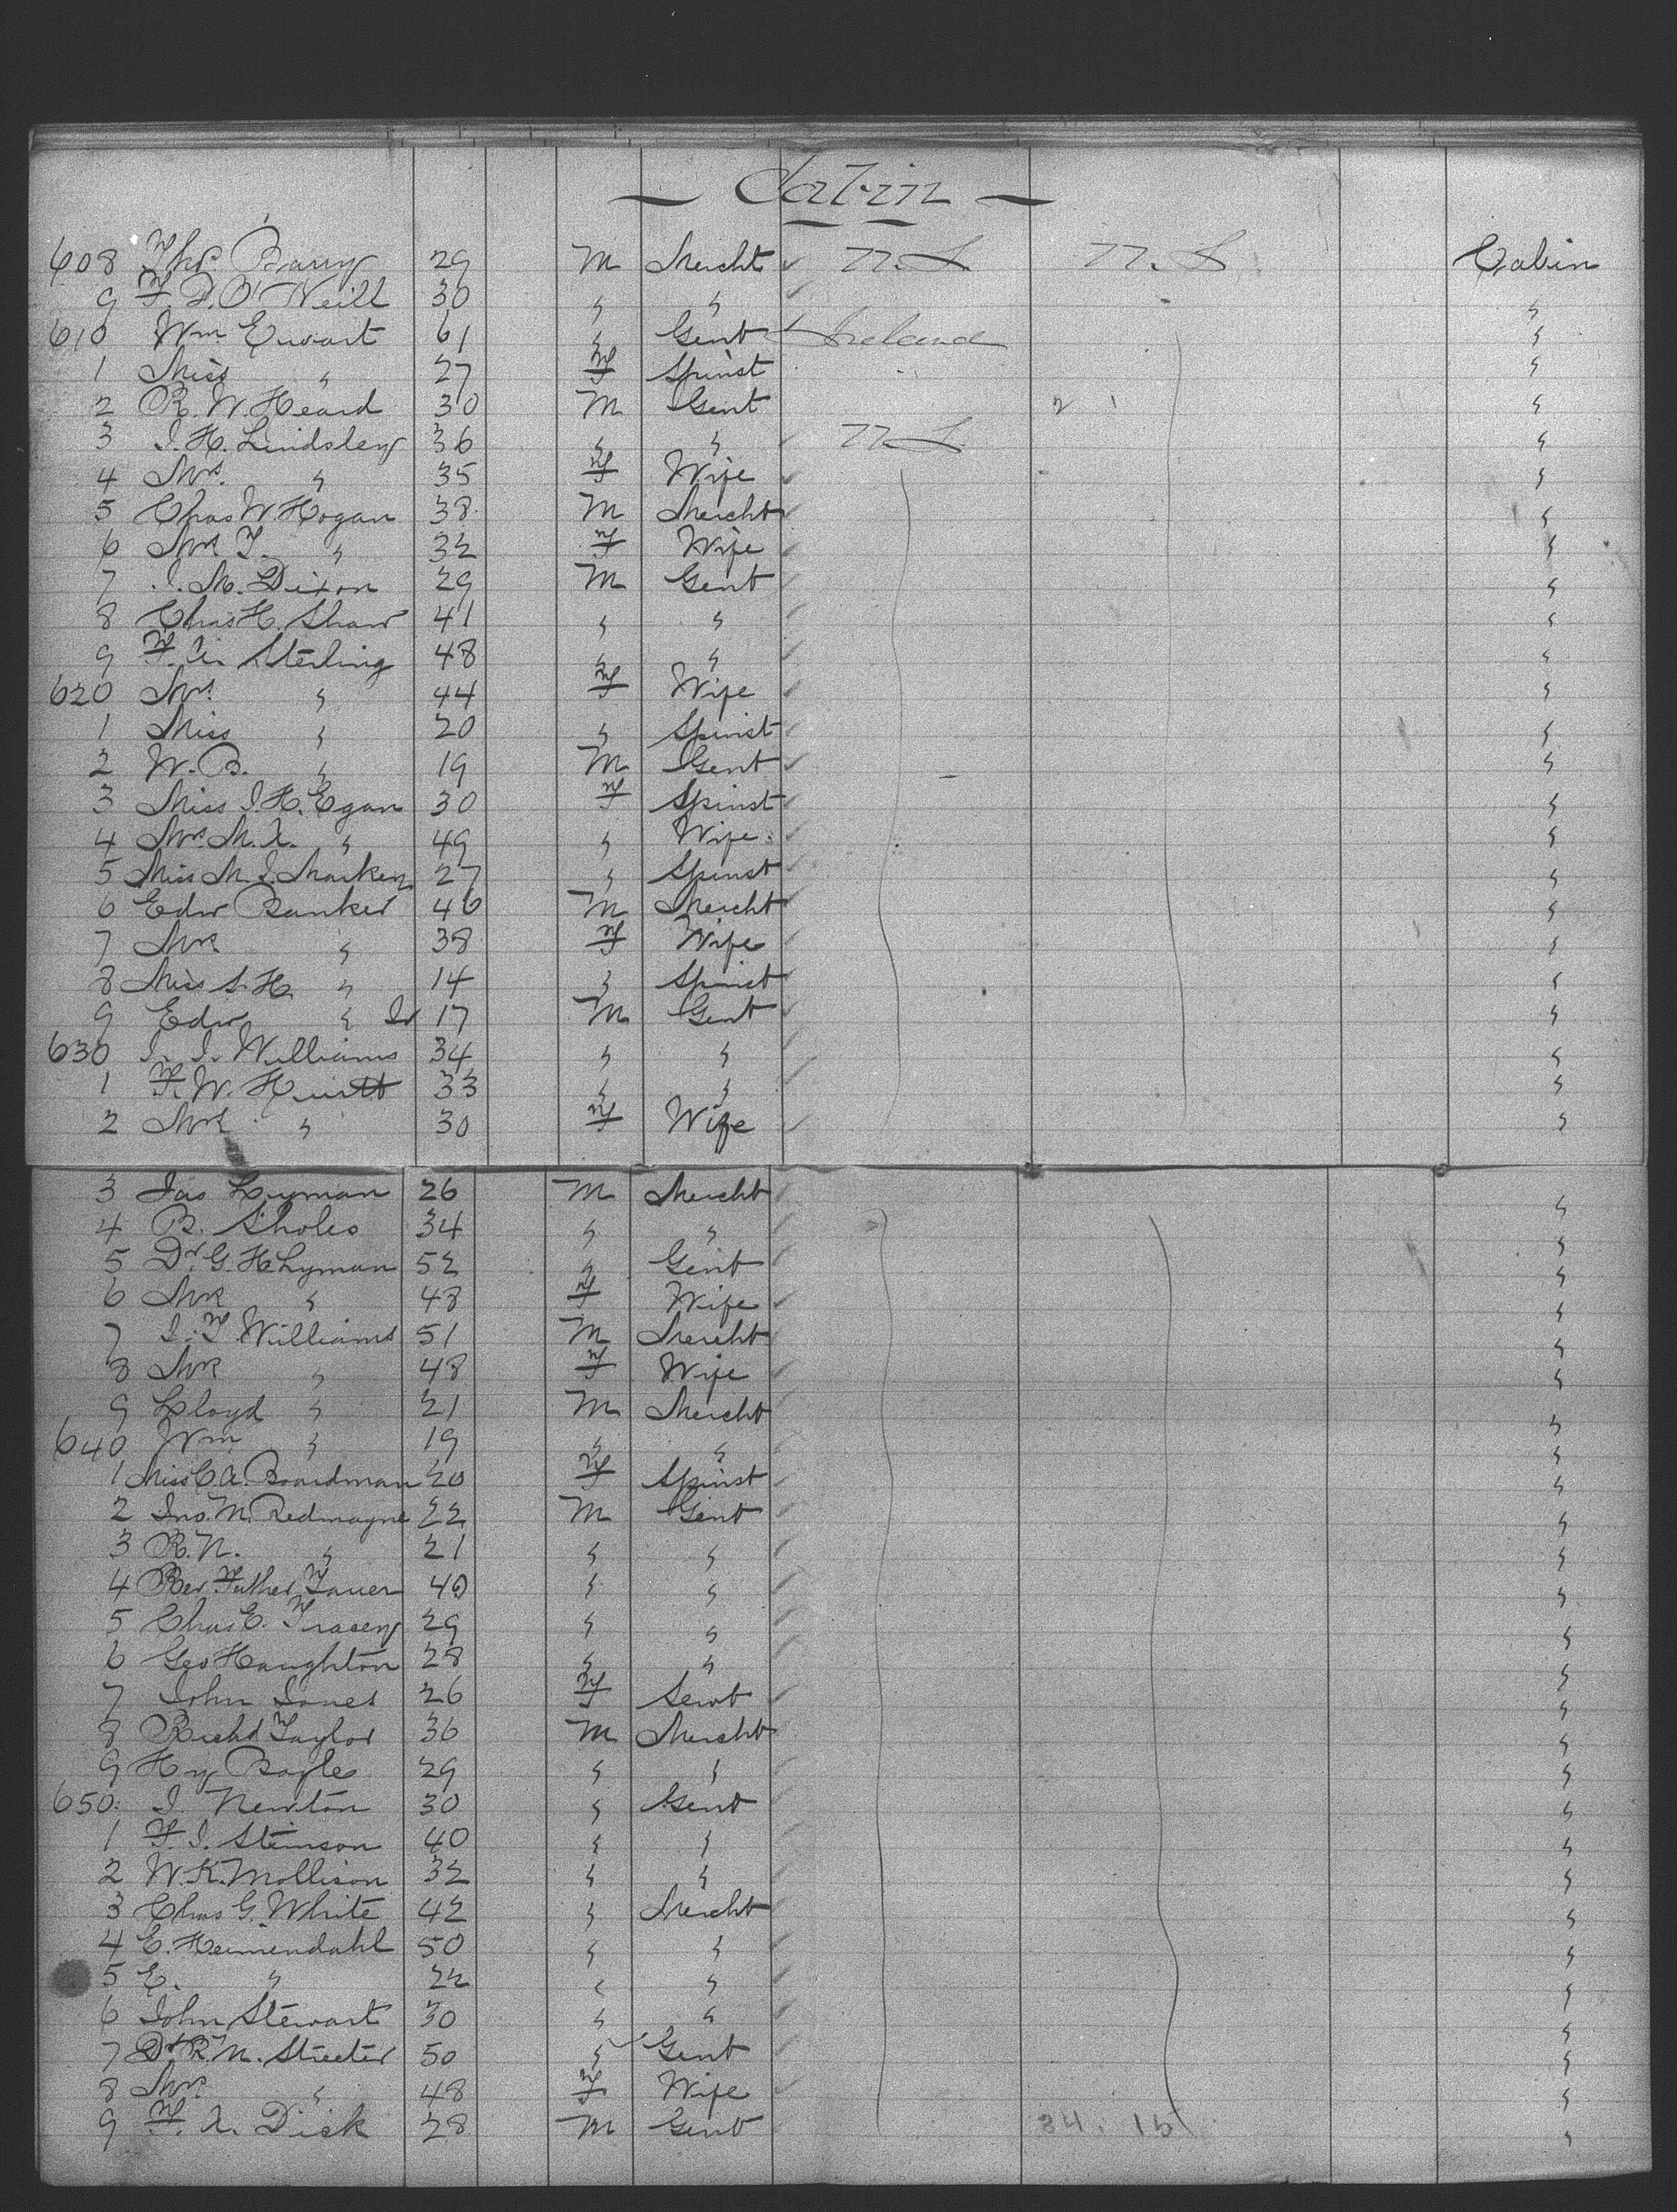 — Cabin —
608 Thos. Barry 29 M Mercht U.S. U.S. Cabin
9 F. D. O'Neill 30 " " "
610 Wm Ewart 61 " Gent Ireland "
1 Miss " 27 F Spinst "
2 R. W. Heard 30 M Gent "
3 J. H. Lindsley 36 " " U.S. "
4 Mrs. " 35 F Wife "
5 Chas W. Hogan 38 M Mercht "
6 Mrs T. " 32 F Wife "
7 J. M. Dixon 29 M Gent "
8 Chas H. Shaw 41 " " "
9 F. A. Sterling 48 " " "
620 Mrs " 44 F Wife "
1 Miss " 20 " Spinst "
2 W. B. " 19 M Gent "
3 Miss J. H. Egan 30 F Spinst "
4 Mrs. M. A. " 49 " Wife "
5 Miss M. J. 27 " Spinst "
6 Edw Banker 46 M Mercht "
7 Mrs " 38 F Wife "
8 Miss S. H. " 14 " Spinst "
9 Edw " Jr 17 M Gent "
630 Williams 34 " " "
1 F. W. 33 " " "
2 Mrs " 30 F Wife "
3 Jas Lyman 26 M Mercht "
4 B. Sholes 34 " " "
5 Dr. G. H Lyman 52 " Gent "
6 Mrs " 48 F Wife "
7 J. T. Williams 51 M Mercht "
8 Mrs " 48 F Wife "
9 Lloyd " 21 M Mercht "
640 Wm " 19 " " "
1 Miss C. A. Boardman 20 F Spinst "
2 Jno. N. Redmayne 22 M Gent "
3 R. N. " 21 " " "
4 Rev. Father 40 " " "
5 Chas E. Tracey 29 " " "
6 Geo Haughton 28 " " "
7 John Jones 26 F Servt "
8 Richd Taylor 36 M Mercht "
9 Hy Bayles 29 " " "
650 J. Newton 30 " Gent "
1 F. J. Stimson 40 " " "
2 W. K. Mollison 32 " " "
3 Chas G. White 42 " Mercht "
4 E. Heimendahl 50 " " "
5 E. " 22 " " "
6 John Stewart 30 " " "
7 Dr R. N. Streeter 50 " Gent "
8 Mrs " 48 F Wife "
9 F. A. Dick 28 M Gent 34. 15 "